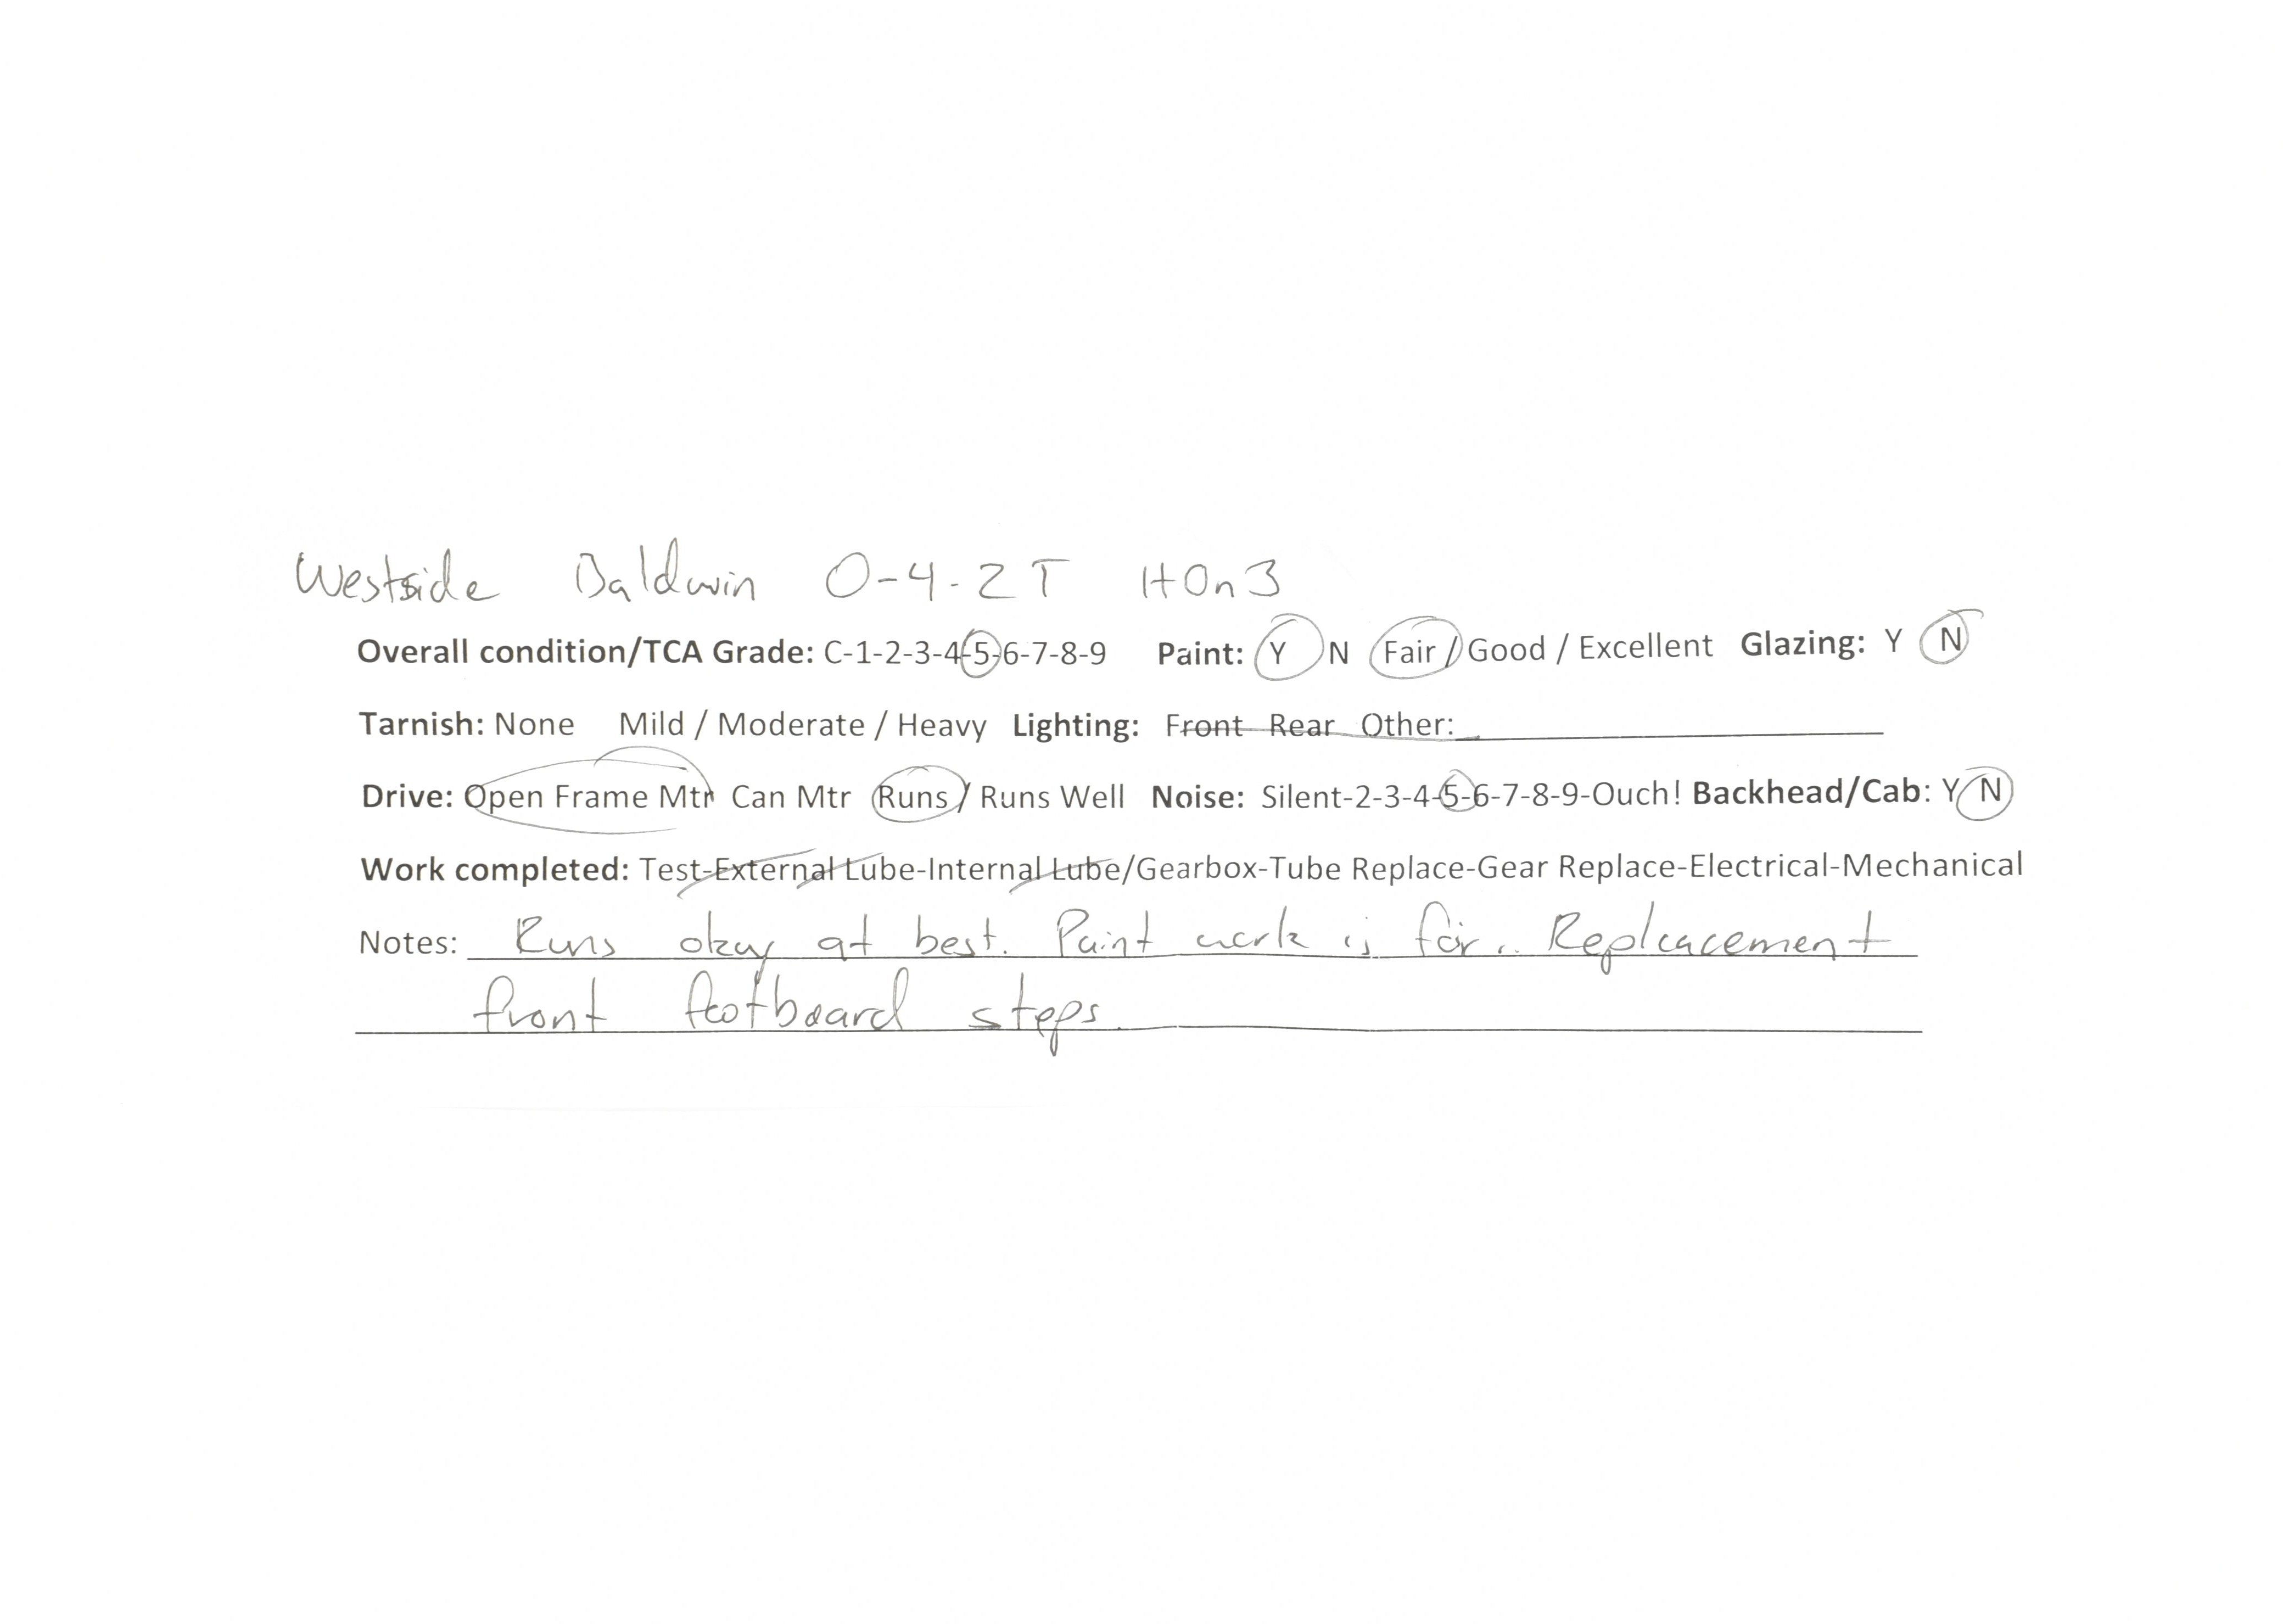 Westside Baldwin 0-4-2T HOn3
Overall condition/TCA Grade: C-1-2-3-4-5-6-7-8-9 Paint: Y N Fair / Good / Excellent Glazing: Y N
Tarnish: None Mild / Moderate / Heavy Lighting: Front Rear Other:
Drive: Open Frame Mtr Can Mtr Runs / Runs Well Noise: Silent-2-3-4-5-6-7-8-9-Ouch! Backhead/Cab: Y N
Work completed: Test-External Lube-Internal Lube/Gearbox-Tube Replace-Gear Replace-Electrical-Mechanical
Notes: Runs okay at best. Paint work is fair. Replcacement
front footboard steps.